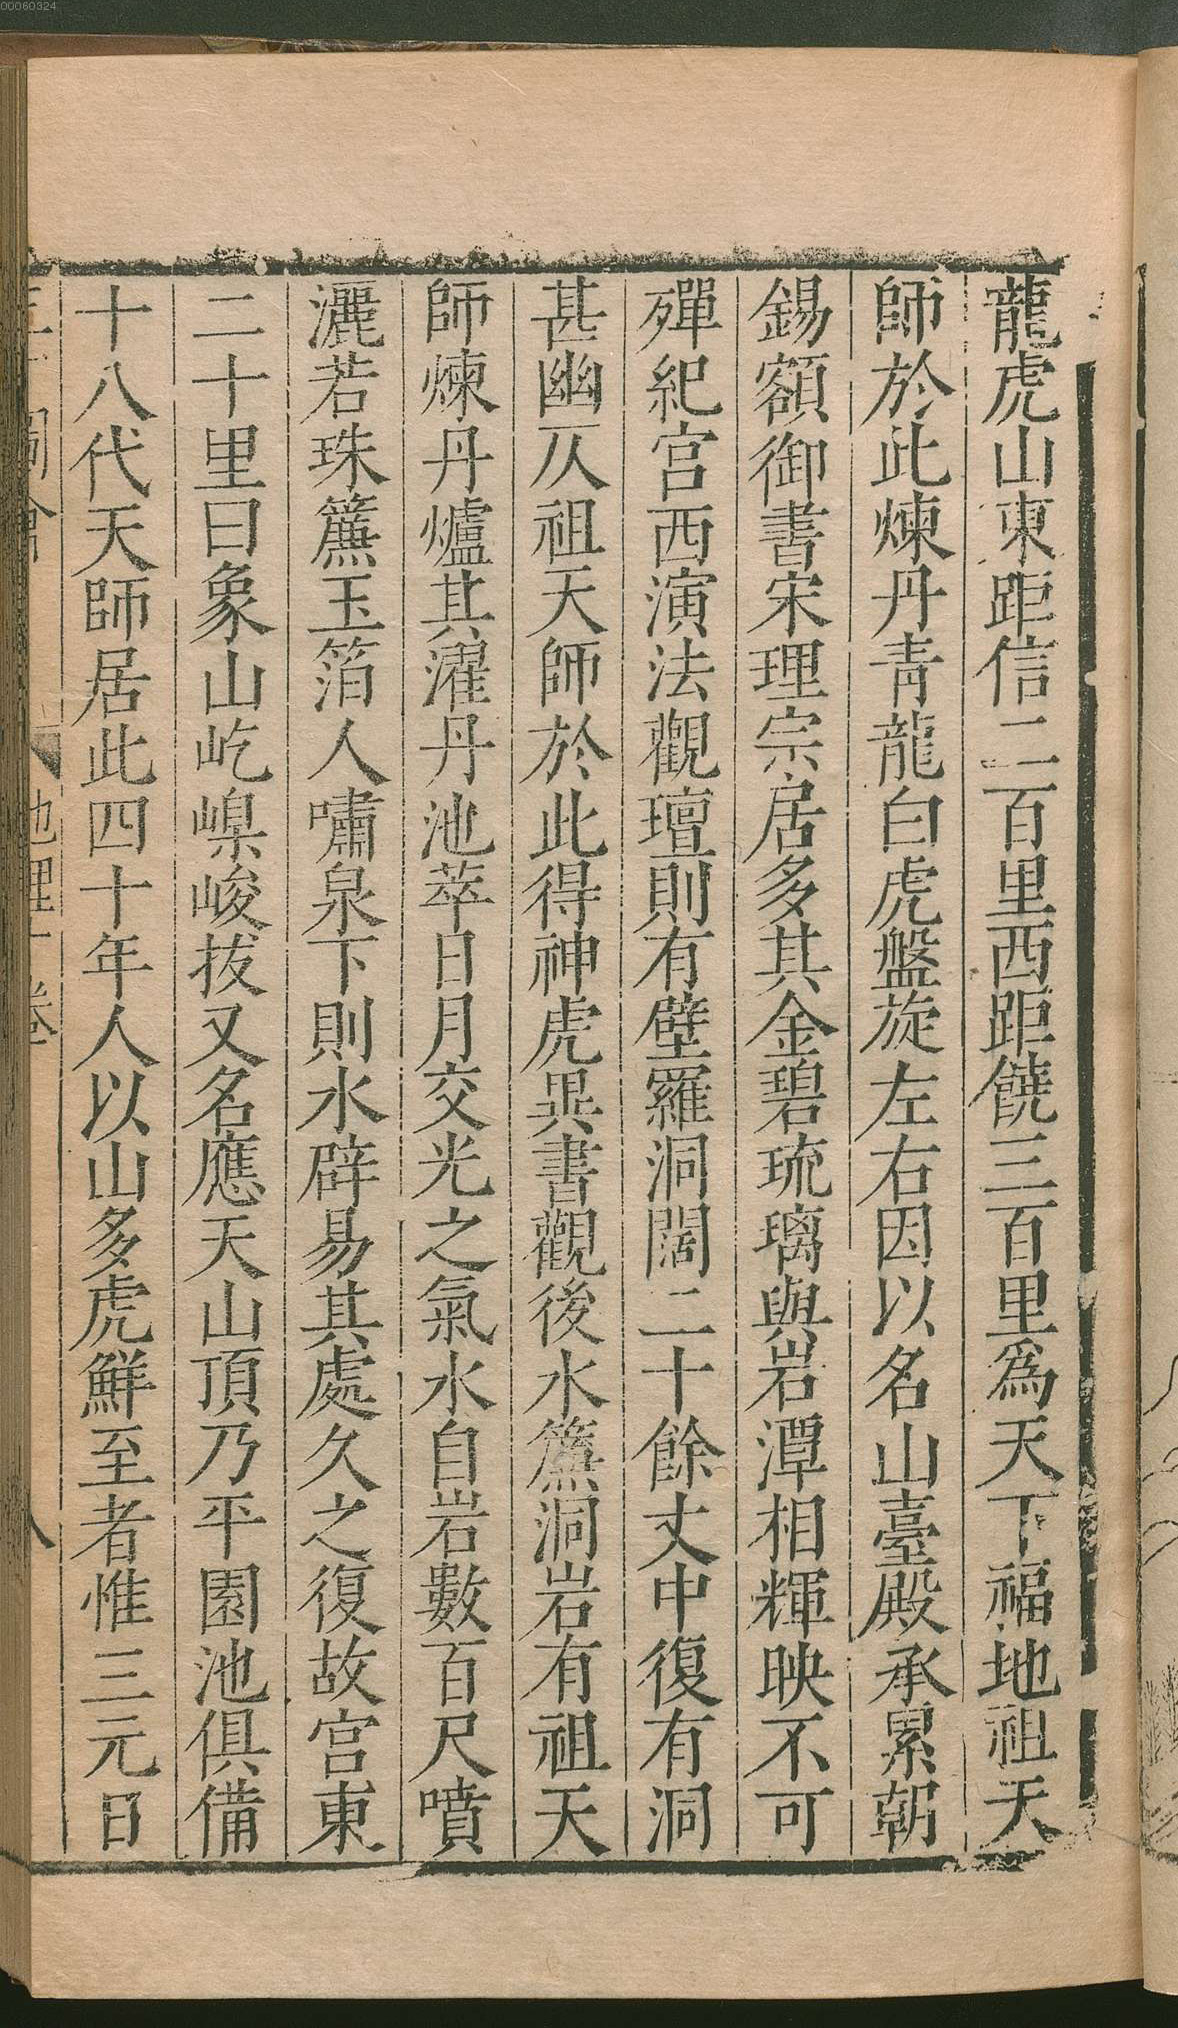 00060324
龍虎山東距信二百里西距饒三百里為天下福地祖天
師於此煉丹青龍白虎盤旋左右因以名山臺殿承累朝
錫額御書宋理宗居多其金碧琉璃與岩潭相輝映不可
殫紀宮西演法觀壇則有壁羅洞闊二十餘丈中復有洞
甚幽仄祖天師於此得神虎異書觀後水簾洞岩有祖天
師煉丹爐其濯丹池萃日月交光之氣水自岩數百尺噴
灑若珠簾玉箔人嘯泉下則水辟易其處久之復故宮東
二十里曰象山屹嵲峻拔又名應天山頂乃平園池俱備
十八代天師居此四十年人以山多虎鮮至者惟三元日
地理十卷
八